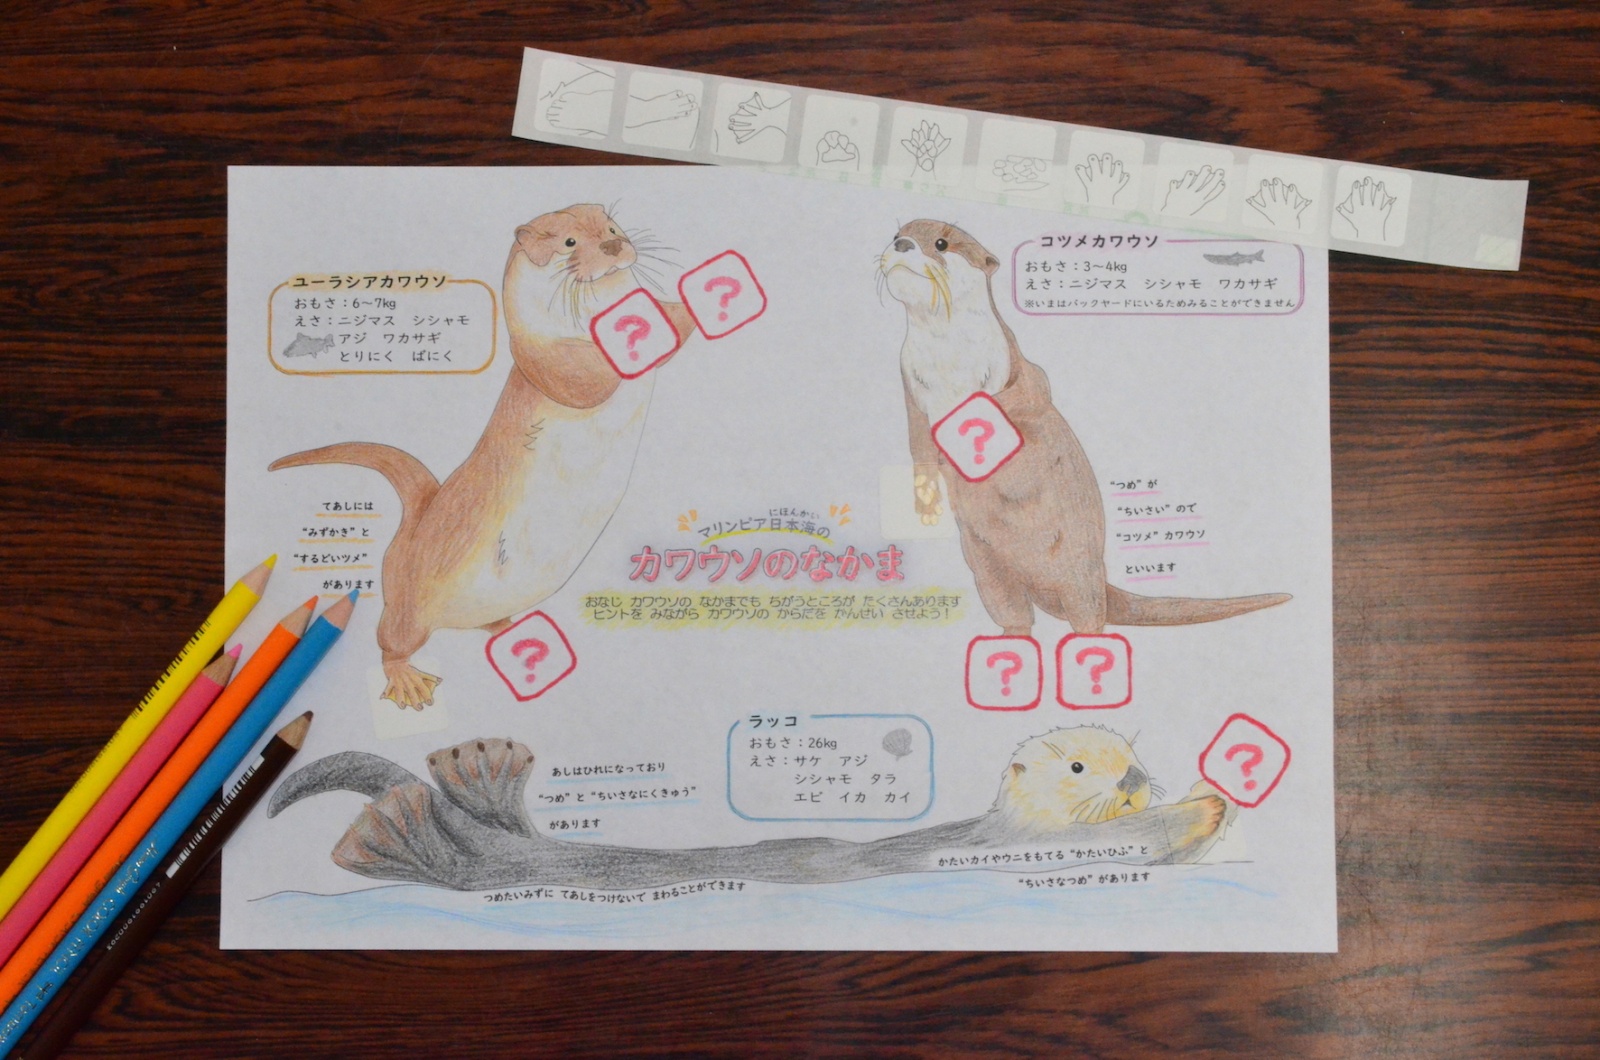 ユーラシアカワウソ
おもさ：6～7kg
えさ：ニジマス シシャモ
アジ ワカサギ
とりにく ばにく
コツメカワウソ
おもさ：3～4kg
えさ：ニジマス シシャモ ワカサギ
※いまはバックヤードにいるためみることができません
?
?
?
てあしには
“みずかき”と
“するどいツメ”
があります
“つめ”が
“ちいさい”ので
“コツメ”カワウソ
といいます
にほんかい
マリンピア日本海の
カワウソのなかま
おなじ カワウソの なかまでも ちがうところが たくさんあります
ヒントを みながら カワウソの からだを かんせい させよう！
?
?
?
ラッコ
おもさ：26kg
えさ：サケ アジ
シシャモ タラ
エビ イカ カイ
?
あしはひれになっており
“つめ”と“ちいさなにくきゅう”
があります
かたいカイやウニをもてる“かたいひふ”と
“ちいさなつめ”があります
つめたいみずに てあしをつけないで まわることができます